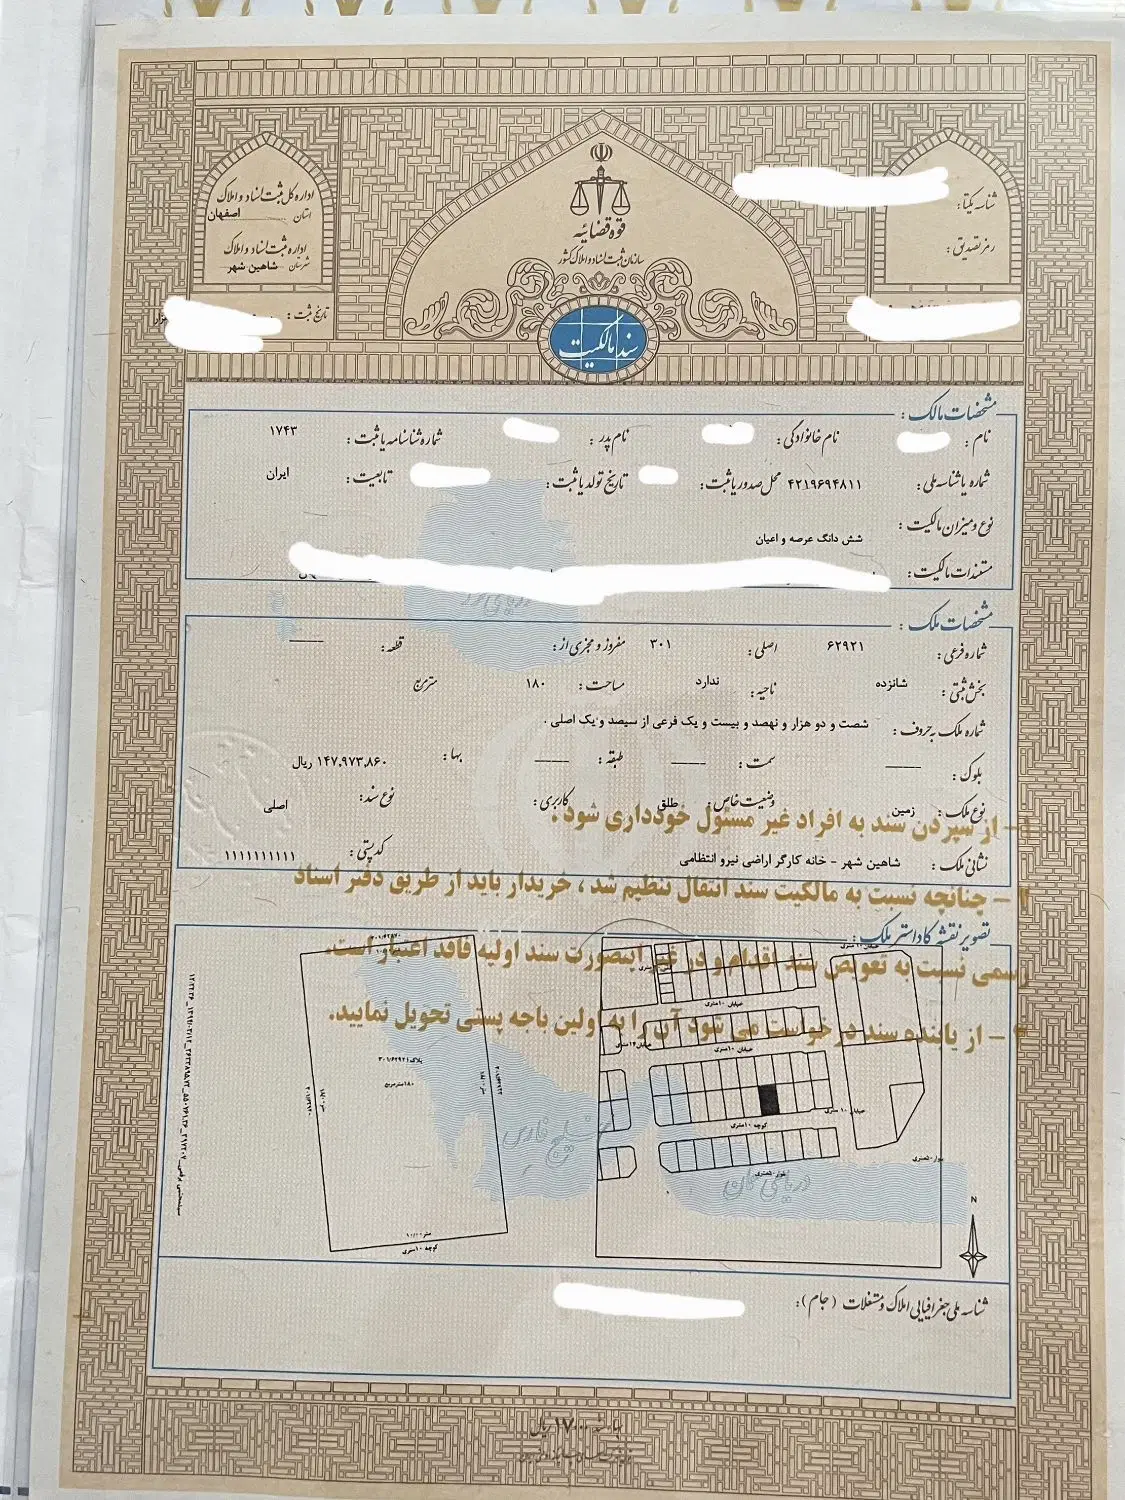 شناسه یکتا:
رمز تصدیق:
قوه قضائیه
سازمان ثبت اسناد و املاک کشور
سند مالکیت
اداره کل ثبت اسناد و املاک
استان اصفهان
اداره ثبت اسناد و املاک
شهرستان شاهین شهر
تاریخ ثبت:
مشخصات مالک:
نام: نام خانوادگی: نام پدر: شماره شناسنامه یا ثبت: ۱۷۴۳
شماره یا شناسه ملی: ۴۲۱۹۶۹۴۸۱۱ محل صدور یا ثبت: تاریخ تولد یا ثبت: تابعیت: ایران
نوع و میزان مالکیت:
شش دانگ عرصه و اعیان
مستندات مالکیت:
مشخصات ملک:
شماره فرعی: ۶۲۹۲۱ اصلی: ۳۰۱ مفروز و مجزی از: قطعه:
بخش ثبتی: شانزده ناحیه: ندارد مساحت: ۱۸۰ مترمربع
شماره ملک به حروف: شصت و دو هزار و نهصد و بیست و یک فرعی از سیصد و یک اصلی .
بلوک: سمت: طبقه: بها: ۱۴۷,۹۷۳,۸۶۰ ریال
نوع ملک: زمین وضعیت خاص: طلق کاربری: نوع سند: اصلی
نشانی ملک: شاهین شهر - خانه کارگر اراضی نیرو انتظامی کد پستی: ۱۱۱۱۱۱۱۱۱۱
۱- از سپردن سند به افراد غیر مسئول خودداری شود.
۲- چنانچه نسبت به مالکیت سند انتقال تنظیم شد ، خریدار باید از طریق دفتر اسناد
رسمی نسبت به تعویض سند اقدام و در غیر اینصورت سند اولیه فاقد اعتبار است.
۳- از یابنده سند درخواست می شود آن را به اولین باجه پستی تحویل نمایید.
تصویر نقشه کاداستر ملک:
خیابان ۱۰ متری
خیابان ۱۰ متری
خیابان ۱۴ متری
خیابان ۱۰ متری
کوچه ۱۰ متری
پلاک ۳۰۱/۶۲۹۲۱
۱۸۰ مترمربع
متر ۱۰/۰۰
کوچه ۱۰ متری
خلیج فارس
دریای عمان
N
شناسه ملی جغرافیایی املاک و مستغلات (جام):